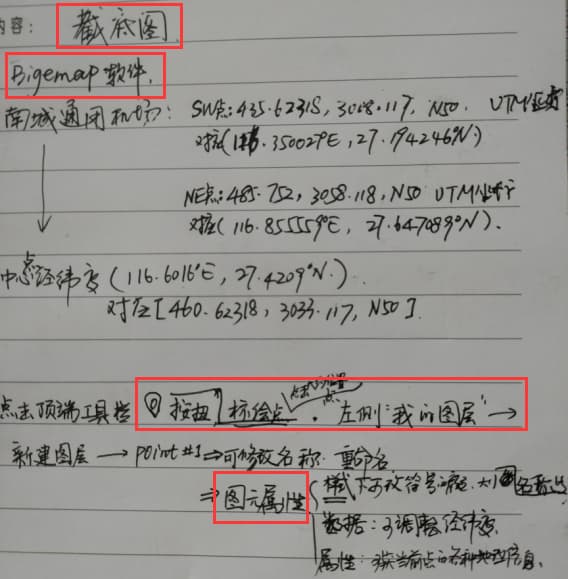 内容: 截底图
Bigemap软件.
南城通用机场: SW点: 435.62318, 3008.117, N50, UTM坐标
对应(116.350029°E, 27.194246°N)
NE点: 485.752, 3058.118, N50 UTM坐标
对应(116.855559°E, 27.647089°N).
中点经纬度(116.6016°E, 27.4209°N.)
对应[460.62318, 3033.117, N50].
点击顶端工具栏 按钮, 标绘点. 左侧"我的图层" →
新建图层 → point#1 ⇒ 可修改名称. 重命名
⇒ 图元属性 样式: 可改符号 名称
数据: 可调整经纬度
属性: 当前点的各种地理信息.